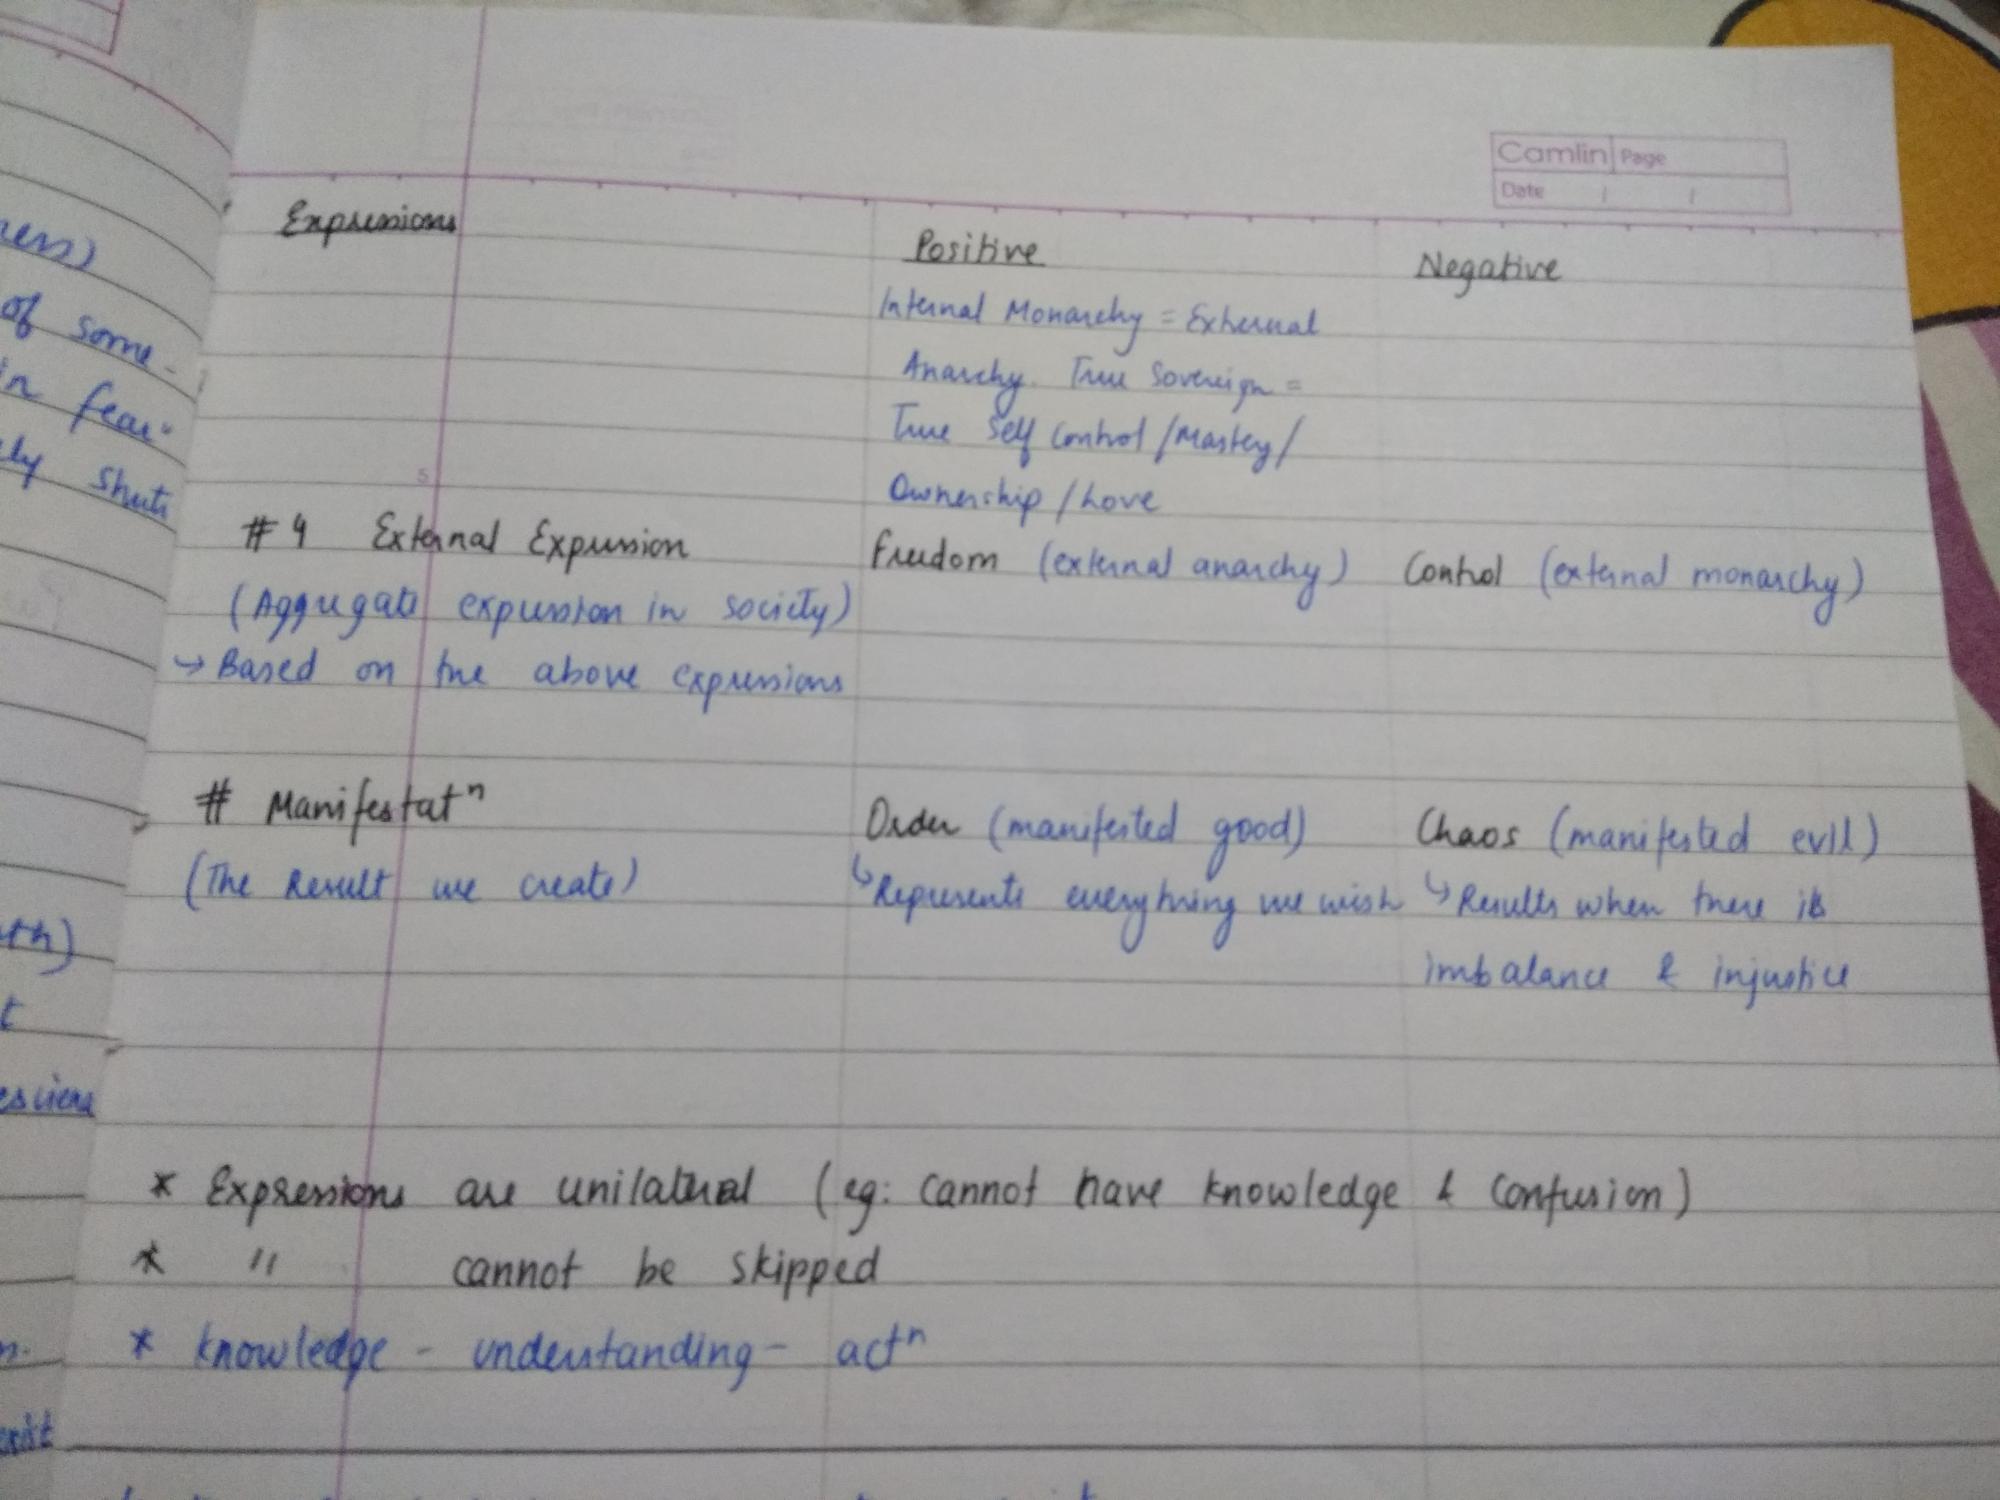 ness)
of some-
in fear"
ely shuts
Camlin Page
Date / /
Expressions Positive Negative
Internal Monarchy = External
Anarchy. True Sovereign =
True Self Control / Mastery /
Ownership / Love
#4 External Expression Freedom (external anarchy) Control (external monarchy)
(Aggregate expression in society)
↳ Based on the above expressions
# Manifestatⁿ Order (manifested good) Chaos (manifested evil)
(The Result we create) ↳ Represents everything we wish ↳ Results when there is
imbalance & injustice
* Expressions are unilateral (eg: cannot have knowledge & confusion)
* " cannot be skipped
* knowledge - understanding - actⁿ